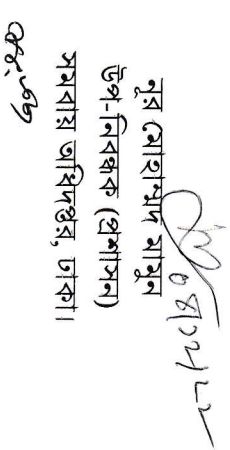 নূর মোহাম্মদ মামুন
উপ-নিবন্ধক (প্রশাসন)
সমবায় অধিদপ্তর, ঢাকা।